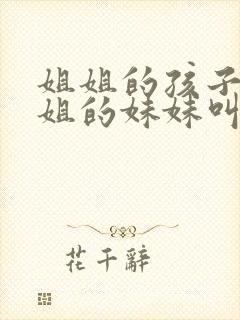 姐姐的孩子
姐的妹妹叫
花千辭